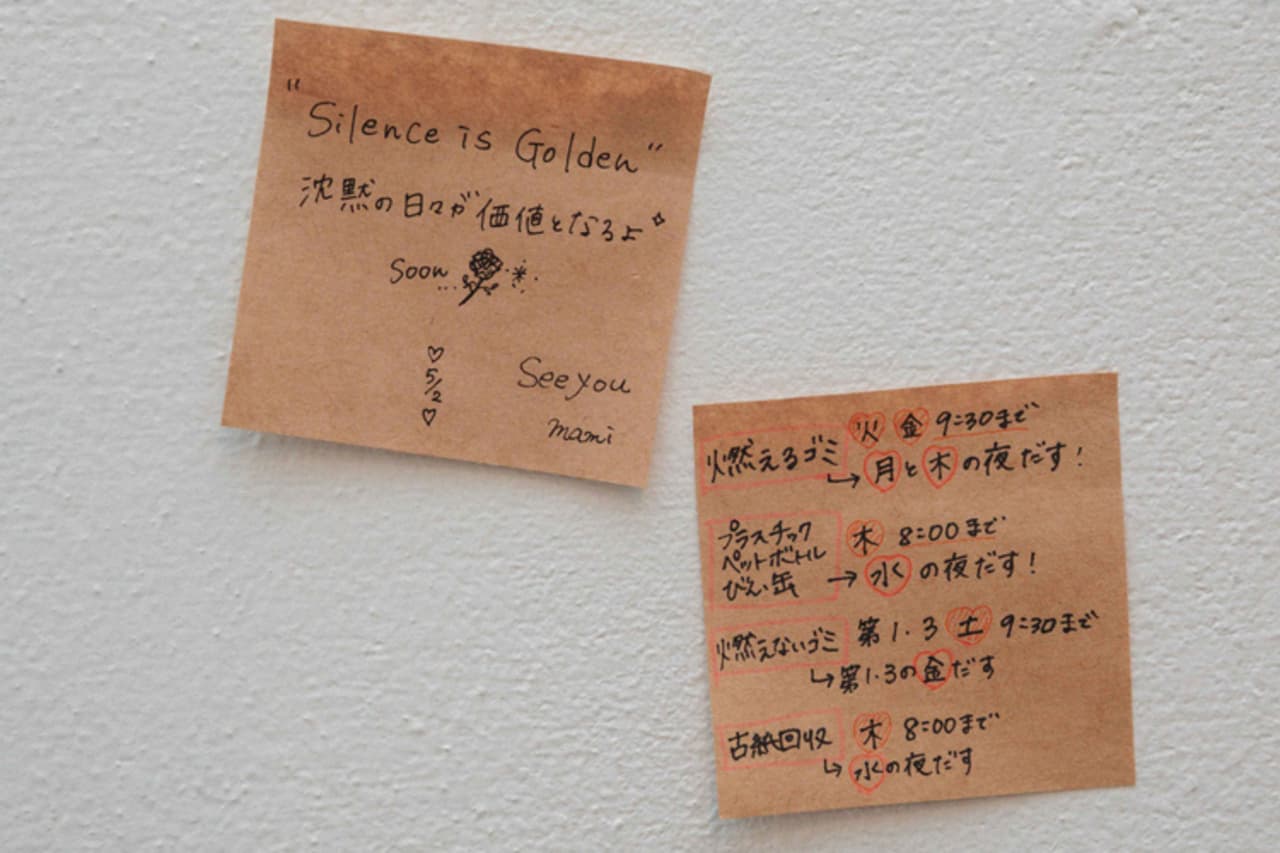 "Silence is Golden"
沈黙の日々が価値となるよ
Soon
5/2
See you
mami
燃えるゴミ 火 金 9:30まで
→ 月と木の夜だす!
プラスチック
ペットボトル
びん・缶
木 8:00まで
→ 水の夜だす!
燃えないゴミ 第1・3 土 9:30まで
→ 第1・3の金だす
古紙回収 木 8:00まで
→ 水の夜だす